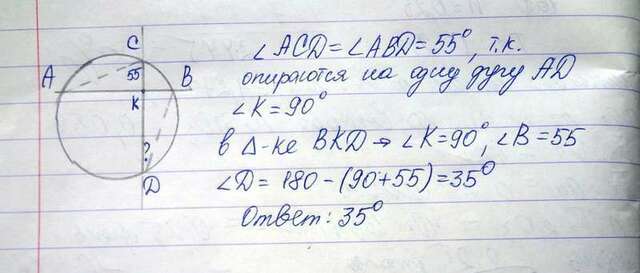 C
55
A
B
K
?
D
∠ACD = ∠ABD = 55°, т.к.
опираются на одну дугу AD
∠K = 90°
в Δ-ке BKD → ∠K = 90°, ∠B = 55
∠D = 180 - (90 + 55) = 35°
Ответ: 35°